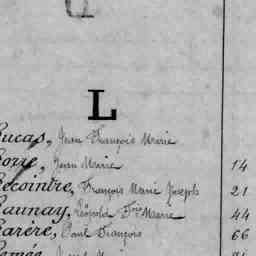 L
Lucas, Jean François Marie
Jean Marie 14
Lecointre, François Marie Joseph 21
Launay, Léopold Fois Marie 44
Paul François 66